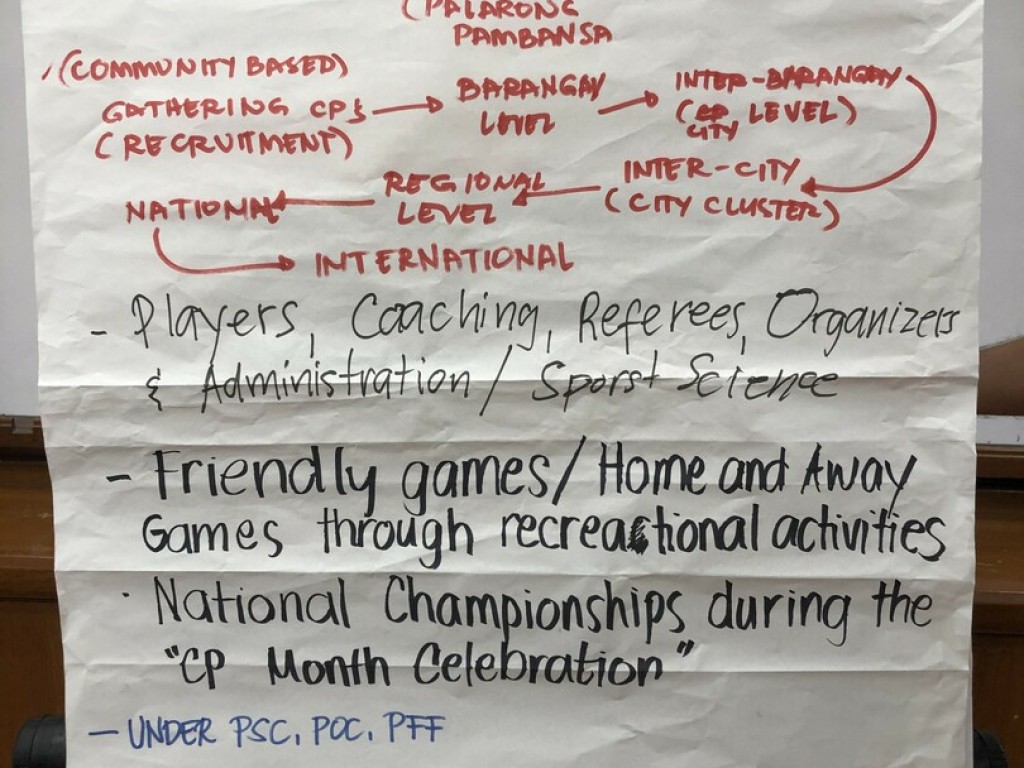 (PALARONG
PAMBANSA
(COMMUNITY BASED)
GATHERING CPs → BARANGAY LEVEL → INTER-BARANGAY
(RECRUITMENT)
(CITY LEVEL)
INTER-CITY
(CITY CLUSTER)
REGIONAL
LEVEL
NATIONAL
INTERNATIONAL
- Players, Coaching, Referees, Organizers
& Administration / Sporst Science
- Friendly games/ Home and Away
Games through recreactional activities
· National Championships during the
"CP Month Celebration"
- UNDER PSC, POC, PFF